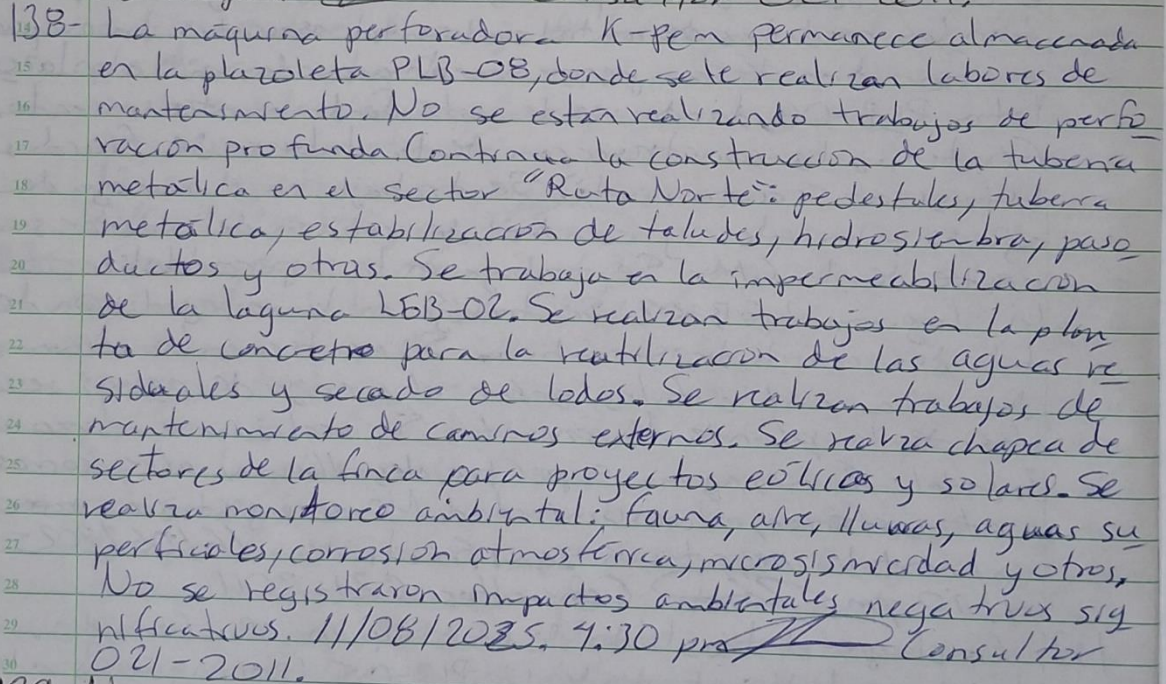 138- La máquina perforadora K-Pem permanece almacenada
15 en la plazoleta PLB-08, donde se le realizan labores de
16 mantenimiento. No se están realizando trabajos de perfo
17 ración profunda. Continua la construcción de la tubería
18 metálica en el sector "Ruta Norte": pedestales, tubería
19 metálica, estabilización de taludes, hidrosiembra, paso
20 ductos y otras. Se trabaja en la impermeabilización
21 de la laguna LEB-02. Se realizan trabajos en la plan
22 ta de concreto para la reutilización de las aguas re
23 siduales y secado de lodos. Se realizan trabajos de
24 mantenimiento de caminos externos. Se realiza chapea de
25 sectores de la finca para proyectos eólicos y solares. Se
26 realiza monitoreo ambiental: fauna, aire, lluvias, aguas su
27 perficiales, corrosión atmosférica, microsismicidad y otros,
28 No se registraron impactos ambientales negativos sig
29 nificativos. 11/08/2025. 4:30 pm Consultor
30 021-2011.